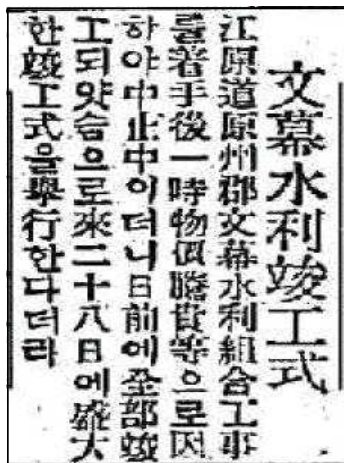 文幕水利竣工式
江原道原州郡文幕水利組合工事
를着手後一時物価騰貴等으로因
하야中止中이더니日前에全部竣
工되얏슴으로來二十八日에盛大
한竣工式을擧行한다더라